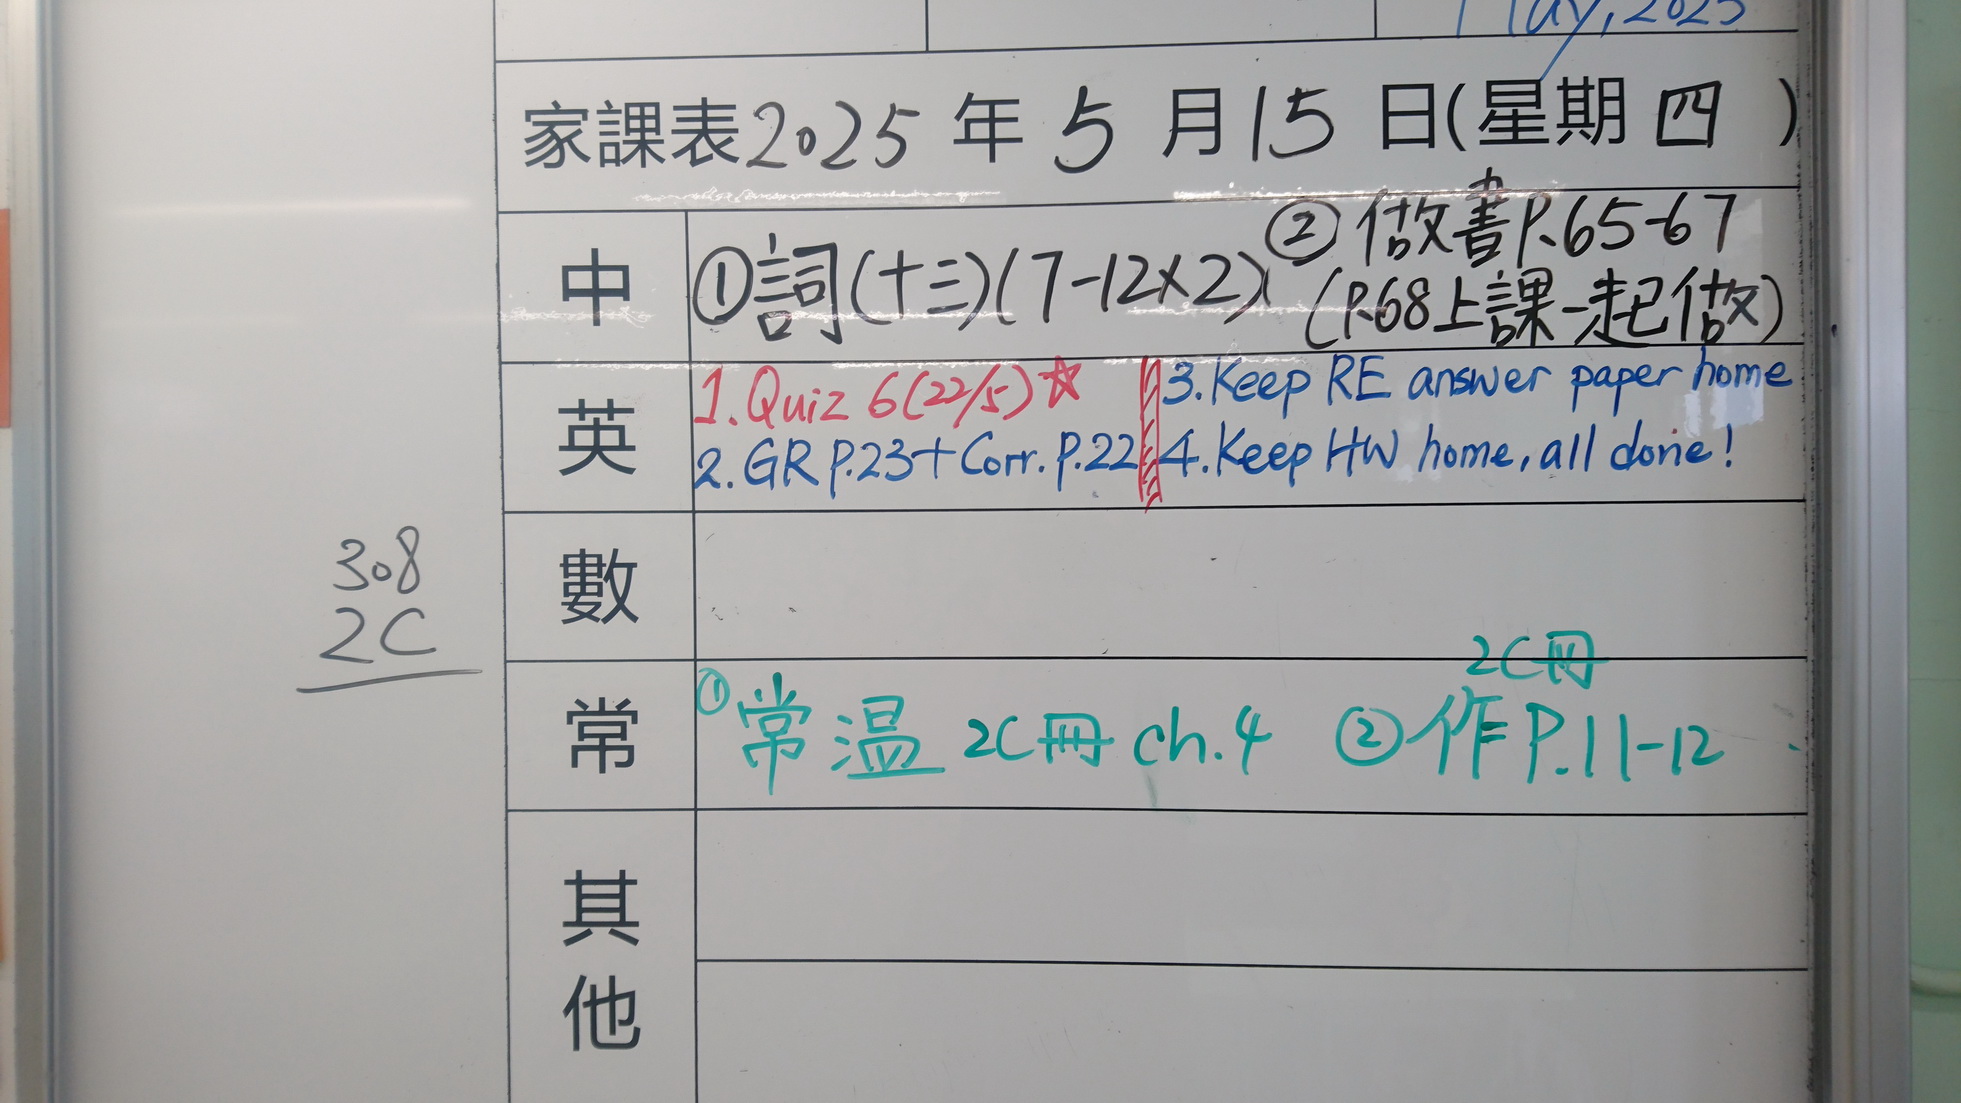 May, 2025
家課表2025年5月15日(星期四)
中
①詞(十三)(7-12x2)
②做書P.65-67
(P.68上課一起做)
英
1.Quiz 6(22/5)☆
2.GR P.23+Corr.P.22
3.Keep RE answer paper home
4.Keep HW home, all done!
數
308
2C
常
①常溫 2C冊 ch.4
2C冊
②作P.11-12
其他